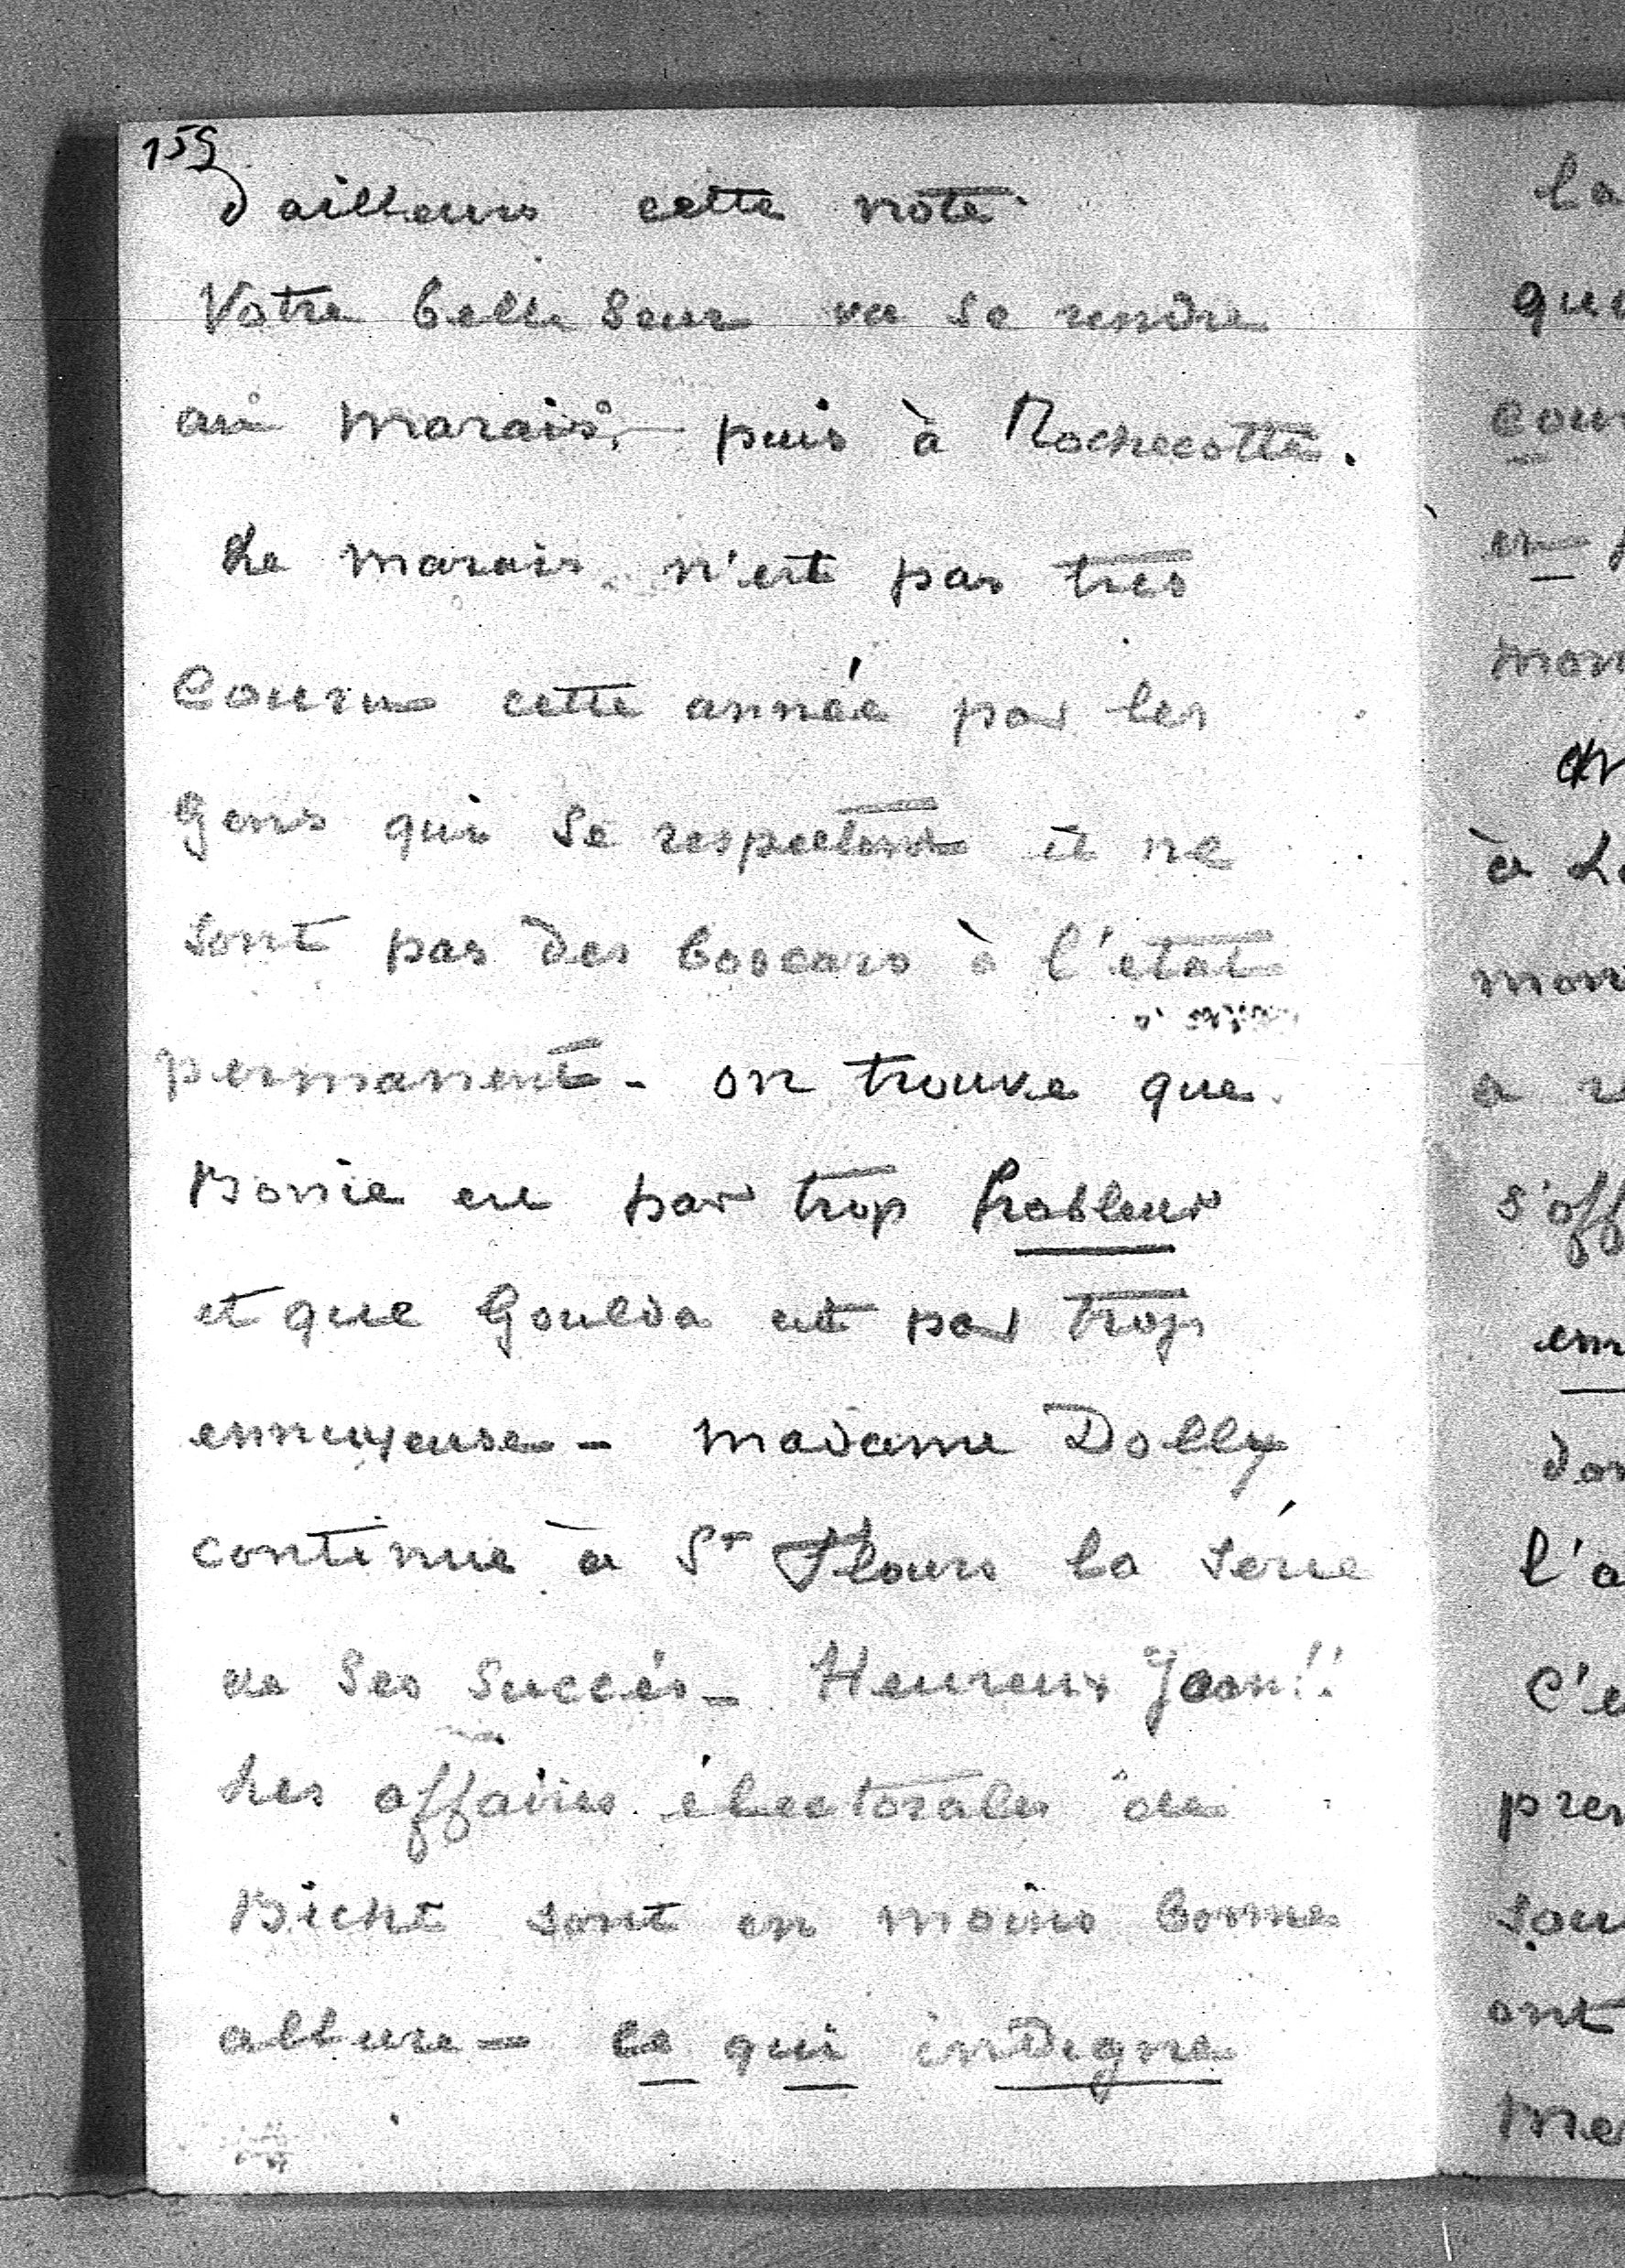 159
d ailleurs cette note
Votre belle Seur va se rendre
au Marais - puis à Rochecotte.
Le marais n'est pas tres
Couru cette année par les
Gens qui se respectent et ne
sont pas des boscars à l'etat
permanent - on trouve que
Bonie est par trop hableur
et que Goulda est par trop
ennuyeuse - Madame Dolly
continue à St Flours la série
de ses succés - Heureux Jean!!
Les affaires électorales de
Biche sont en moins bonne
allure - ce qui indigne